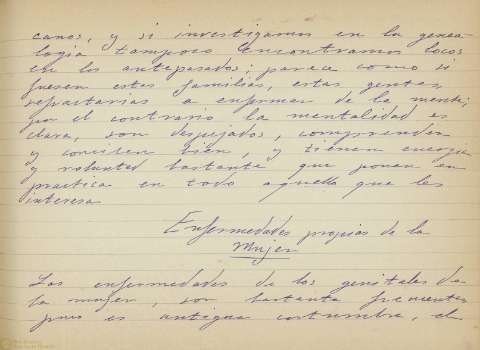 canos, y si investigamos en la genea-
logia tampoco encontramos locos
en los antepasados; parece como si
fuesen estas familias, estas gentes,
refractarias a enfermar de la mente;
por el contrario la mentalidad es
clara, son despejados, comprenden
y conciben bien, y tienen energia
y voluntad bastante que ponen en
practica en todo aquello que les
interesa
Enfermedades propias de la
Mujer
Las enfermedades de los genitales de
la mujer, son bastante frecuentes
pues es antigua costumbre, el